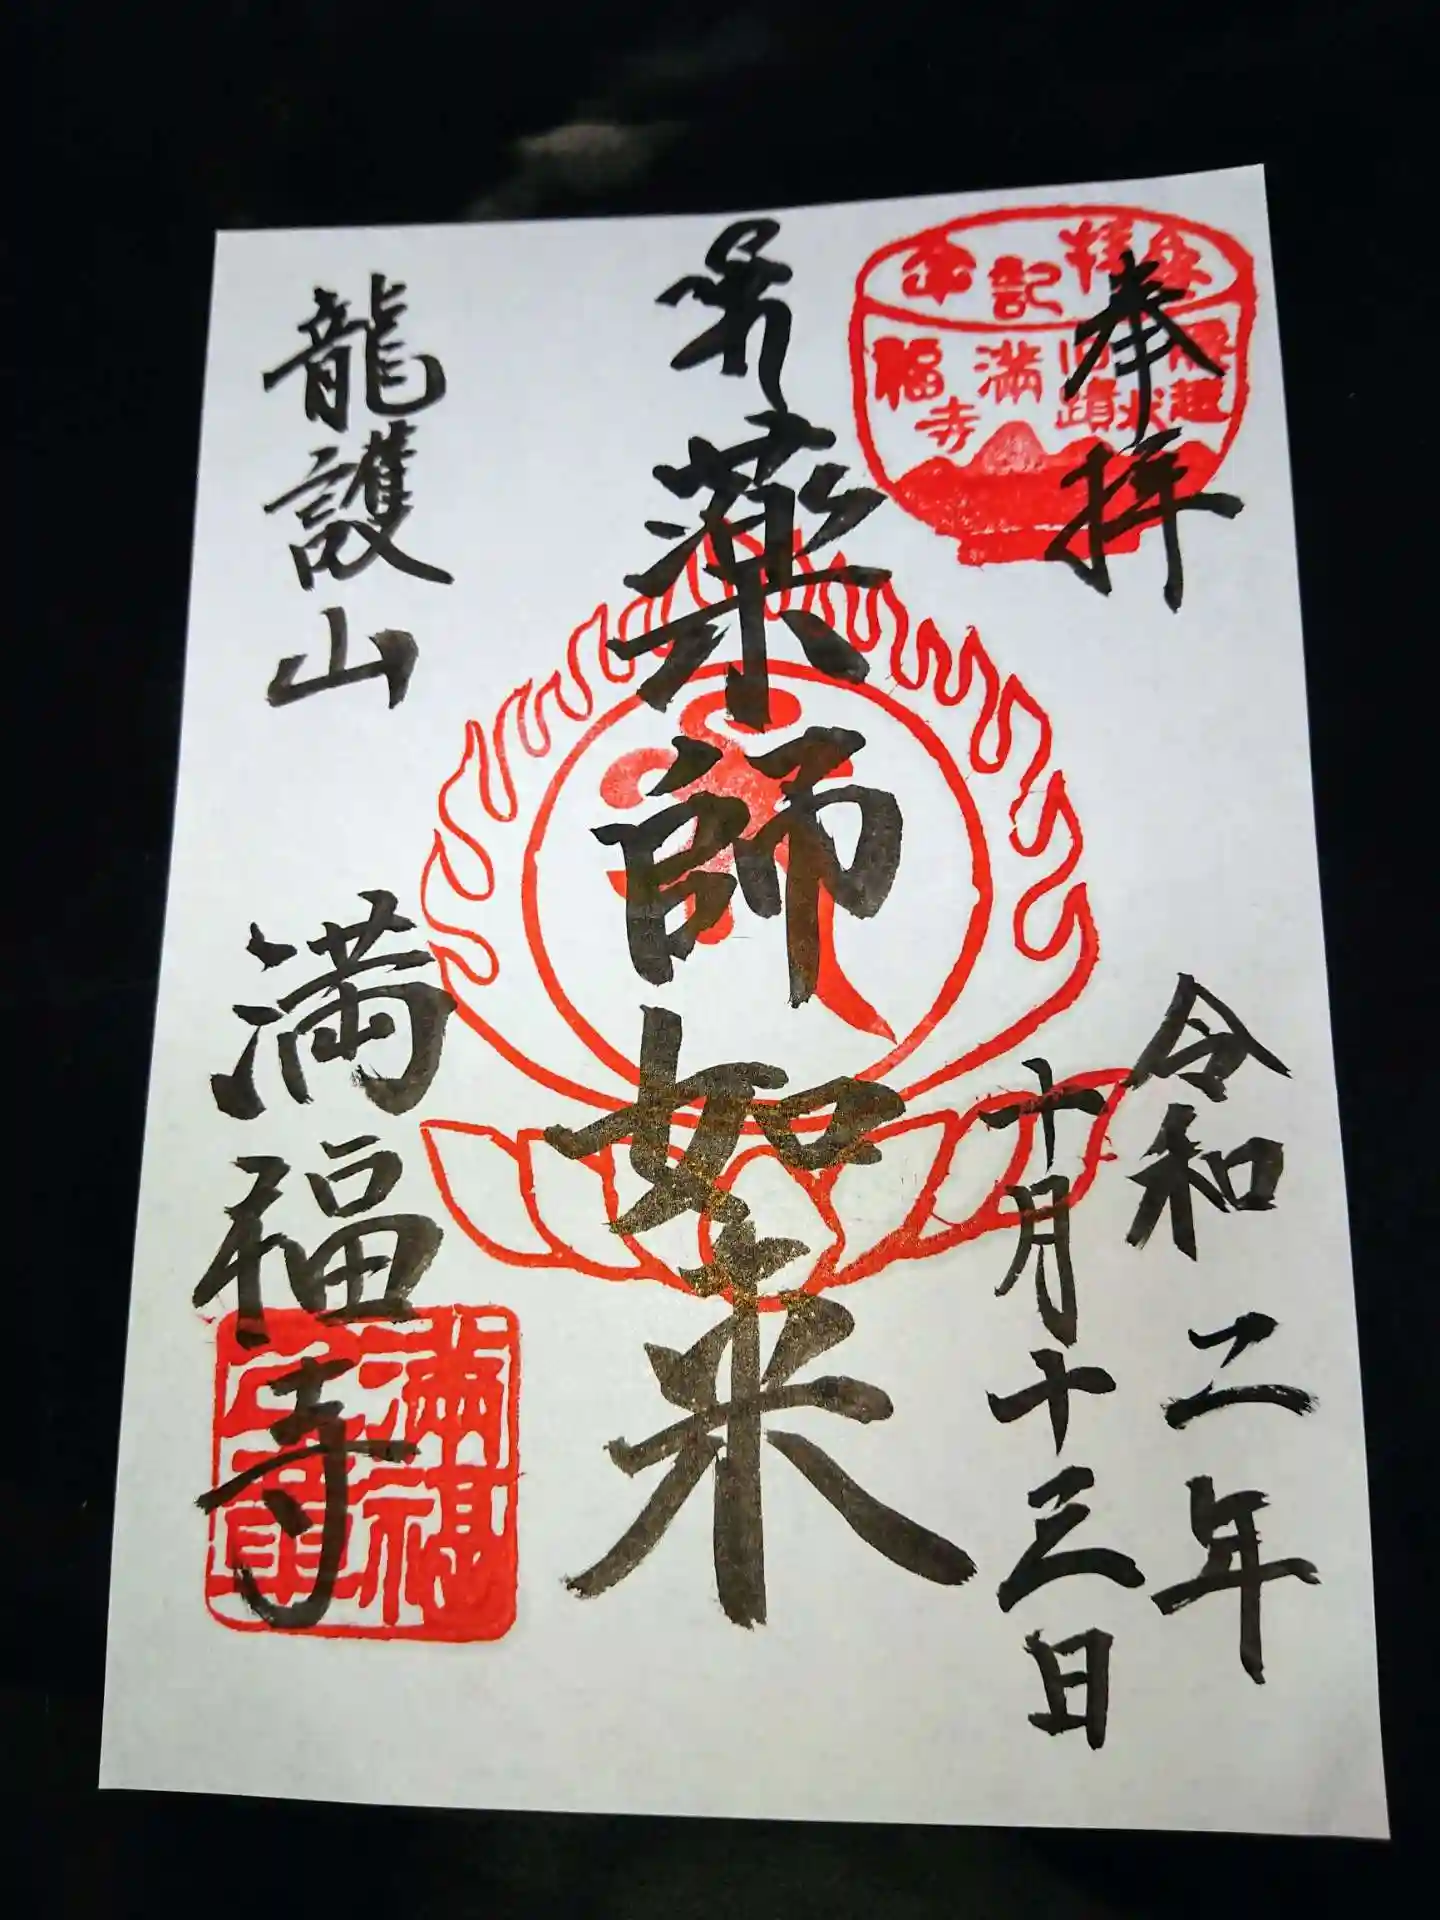 奉拝
令和二年
十月十三日
薬師如来
龍護山
満福寺
登拝記念
腰越
旧蹟
満福寺
満福